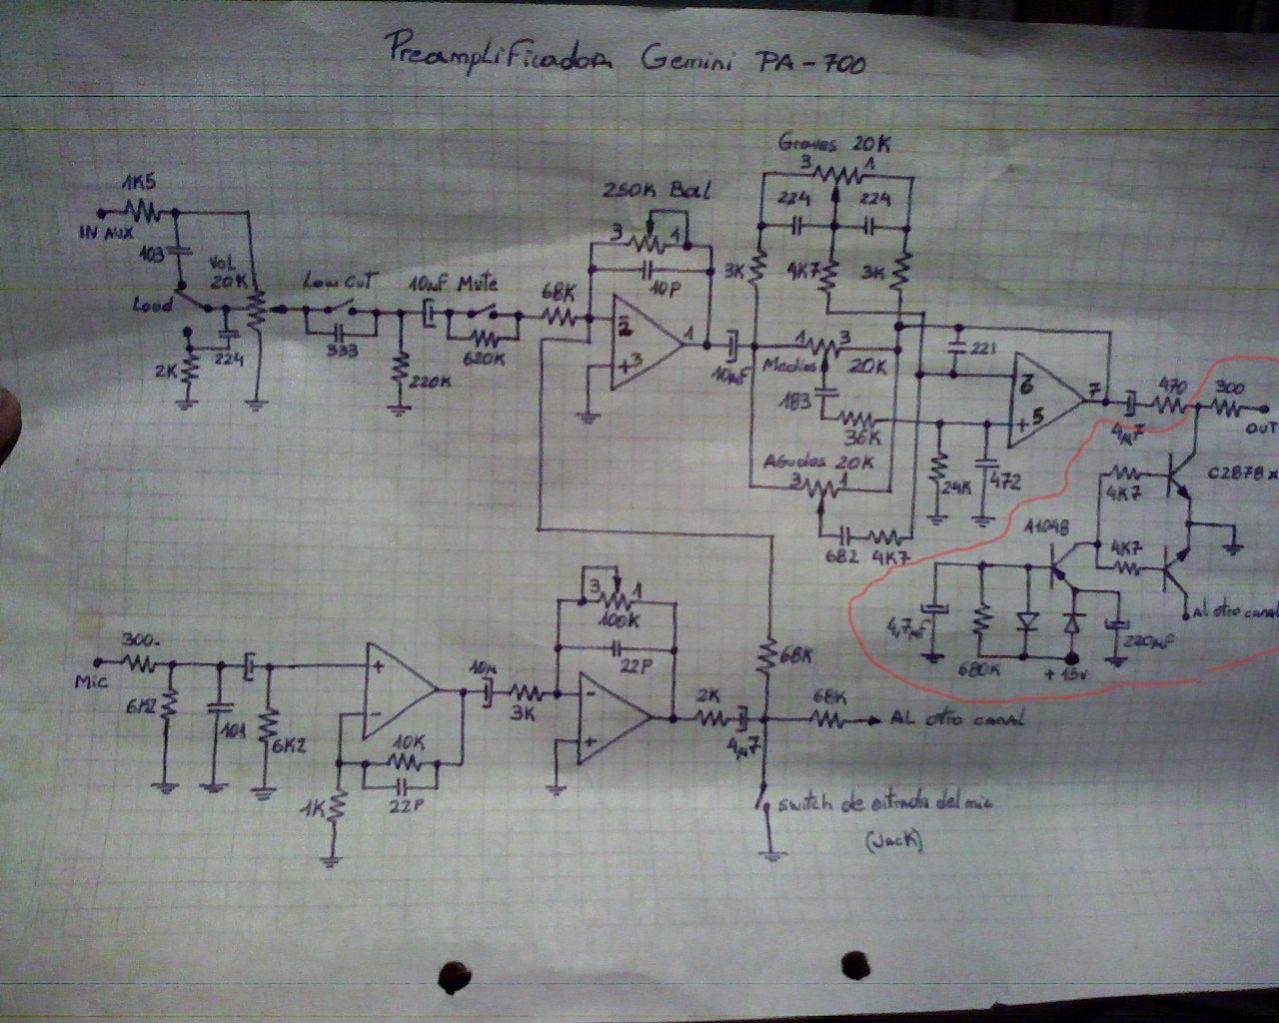 Preamplificador Gemini PA-700
Graves 20K
3 1
224 224
1K5
IN AUX
103
Vol
20K
Loud
224
2K
Low Cut
333
220K
10uF
Mute
620K
68K
250K Bal
3 1
10P
2
+3
1
10uF
3K
4K7
3K
1 3
Medios
20K
183
36K
Agudos 20K
3 1
682
4K7
221
6
+5
7
24K
472
4µ7
470
300
OUT
C2878 x
4K7
A1048
4K7
Al otro canal
4,7µF
680K
+15v
220µF
300
Mic
6K2
101
6K2
+
-
10K
22P
1K
10u
3K
3 1
100K
22P
-
+
2K
4µ7
68K
68K
AL otro canal
switch de entrada del mic
(Jack)